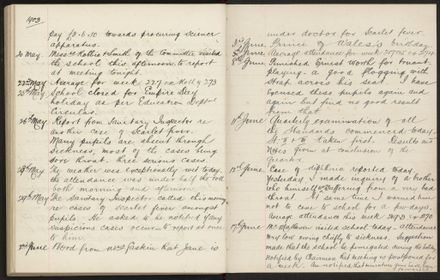 1903
pay £3-6-10 towards procuring science
apparatus.
20 May Messrs Hollis & Smith of the Committee visited
the school this afternoon to report
at meeting tonight.
22nd May Average for week 227 on Roll of 273
25th May School closed for Empire Day
holiday as per Education Deptal
Circular.
26th May Report from Sanitary Inspector re
another case of scarlet fever.
Many pupils are absent through
sickness, most of the cases being
sore throat. Three serious cases.
28th May The weather was exceptionally wet today,
the attendance was under ½ of the roll
both morning and afternoon.
29th May The Sanitary Inspector called this morning
re cases of scarlet fever amongst
pupils. He asked to be notified if any
suspicious cases occur to report at once
to him.
2nd June Word from Mrs Erskin that June is
under doctor for Scarlet fever.
3rd June Prince of Wales's birthday.
June Average attendance for week
June Punished Ernest Worth for truant
playing. a good flogging with
strap across his seat. I have
excused these pupils again and
again but find no good result
from that
June Quarterly examination of all
the Standards commenced today
St. V & VI taken first. Results and
notes given at conclusion of the
quarter.
12th June Case of diphtheria reported today.
Yesterday I made inquiry of a brother
who himself suffering from a very bad
throat. At same time I warned him
not to come to school for a few days.
Average attendance this week
17th June Mr visited school today. Attendance
very low owing chiefly to sickness. Suggestion
made that the school be fumigated during the holiday
notified by Chairman that meeting is postponed for
a week.